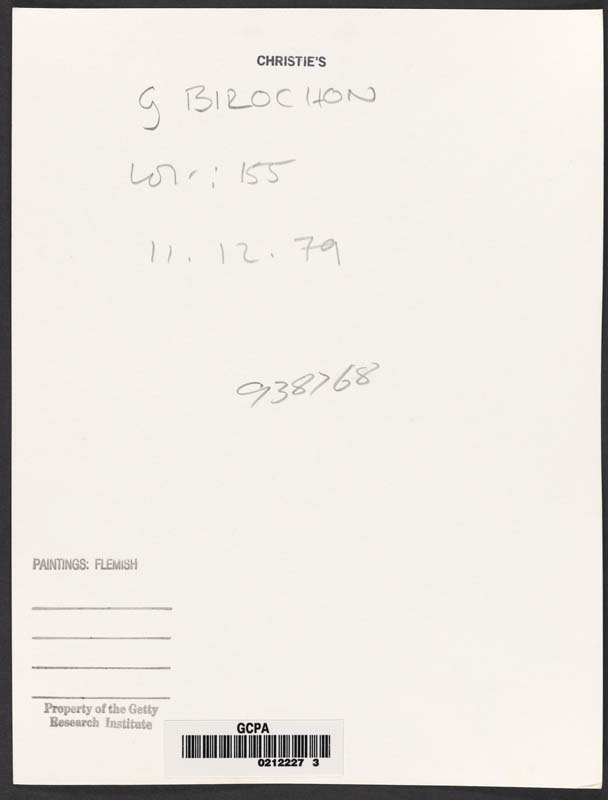 CHRISTIE'S
G BIROCHON
LOT : 155
11. 12. 79
938768
PAINTINGS: FLEMISH
Property of the Getty
Research Institute
GCPA
0212227 3